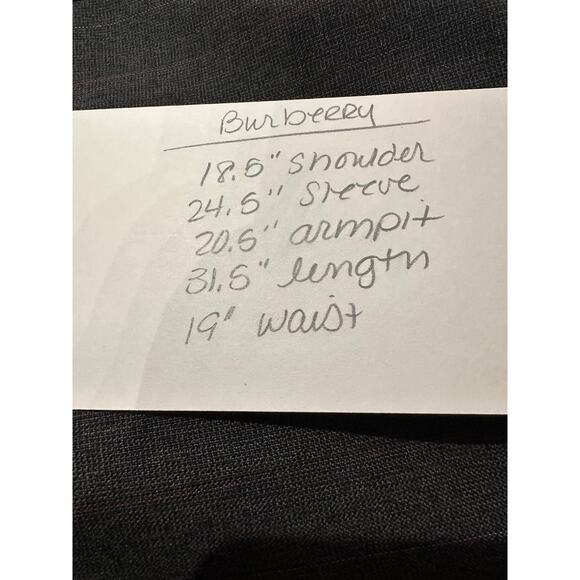 Burberry
18.5" Shoulder
24.5" Sleeve
20.5" armpit
31.5" length
19" waist